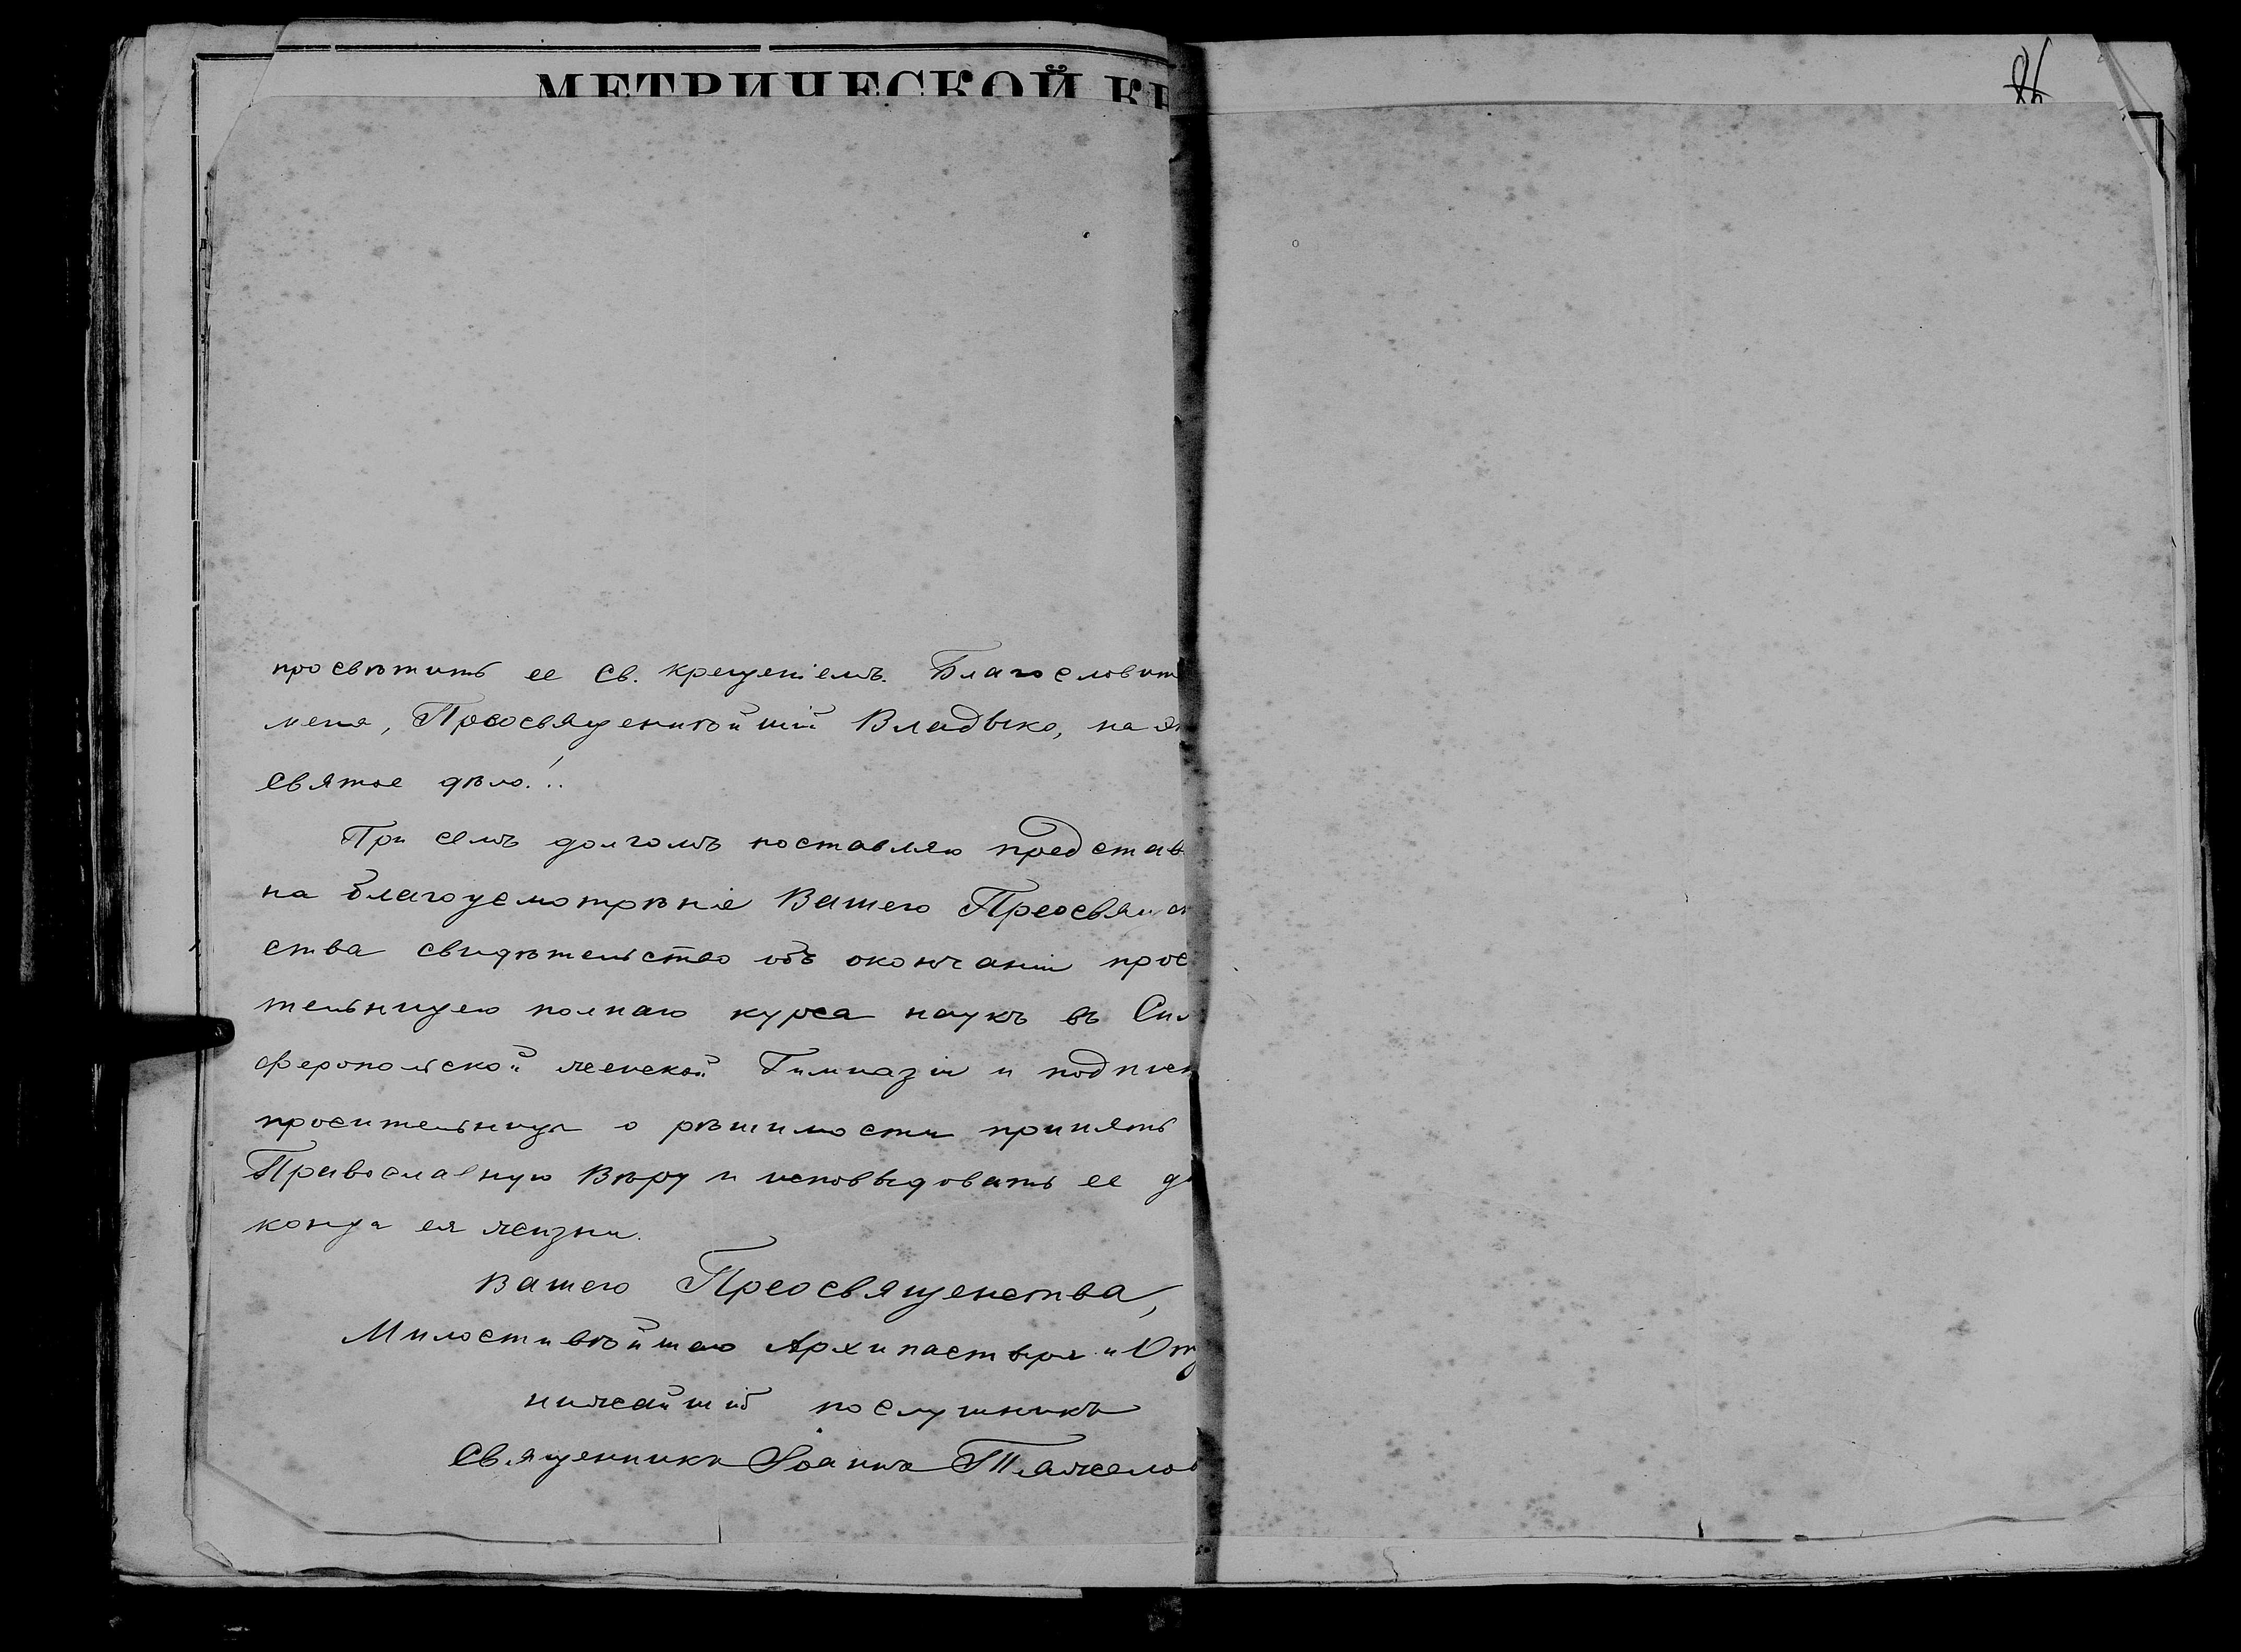 МЕТРИЧЕСКОЙ КН
просвѣтить ее Св. крещеніемъ. Благословит
меня, Преосвященнѣйшій Владыко, на эт
святое дѣло!..
При семъ долгомъ поставляю представ
на благоусмотрѣніе Вашего Преосвящен
ства свидѣтельство объ окончаніи проси
тельницею полнаго курса наукъ въ Сим
феропольской женской Гимназіи и подписк
просительницы о рѣшимости принять
Православную Вѣру и исповѣдовать ее до
конца ея жизни.
Вашего Преосвященства,
Милостивѣйшаго Архипастыря и Отц
нижайшій послушникъ
Священникъ Іоаннъ Тяжелов